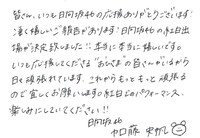 皆さん、いつも日向坂46の応援ありがとうございます!
凄く嬉しいご報告があります!日向坂46の紅白出
場が決定致しました!!本当に本当に嬉しいです。
いつも応援してくださる"おひさま"の皆さんがいるから
日々頑張れています。これからもっともっと頑張る
ので宜しくお願いします⭐︎紅白でのパフォーマンス、
楽しみにしていてください!!
日向坂46
加藤 史帆